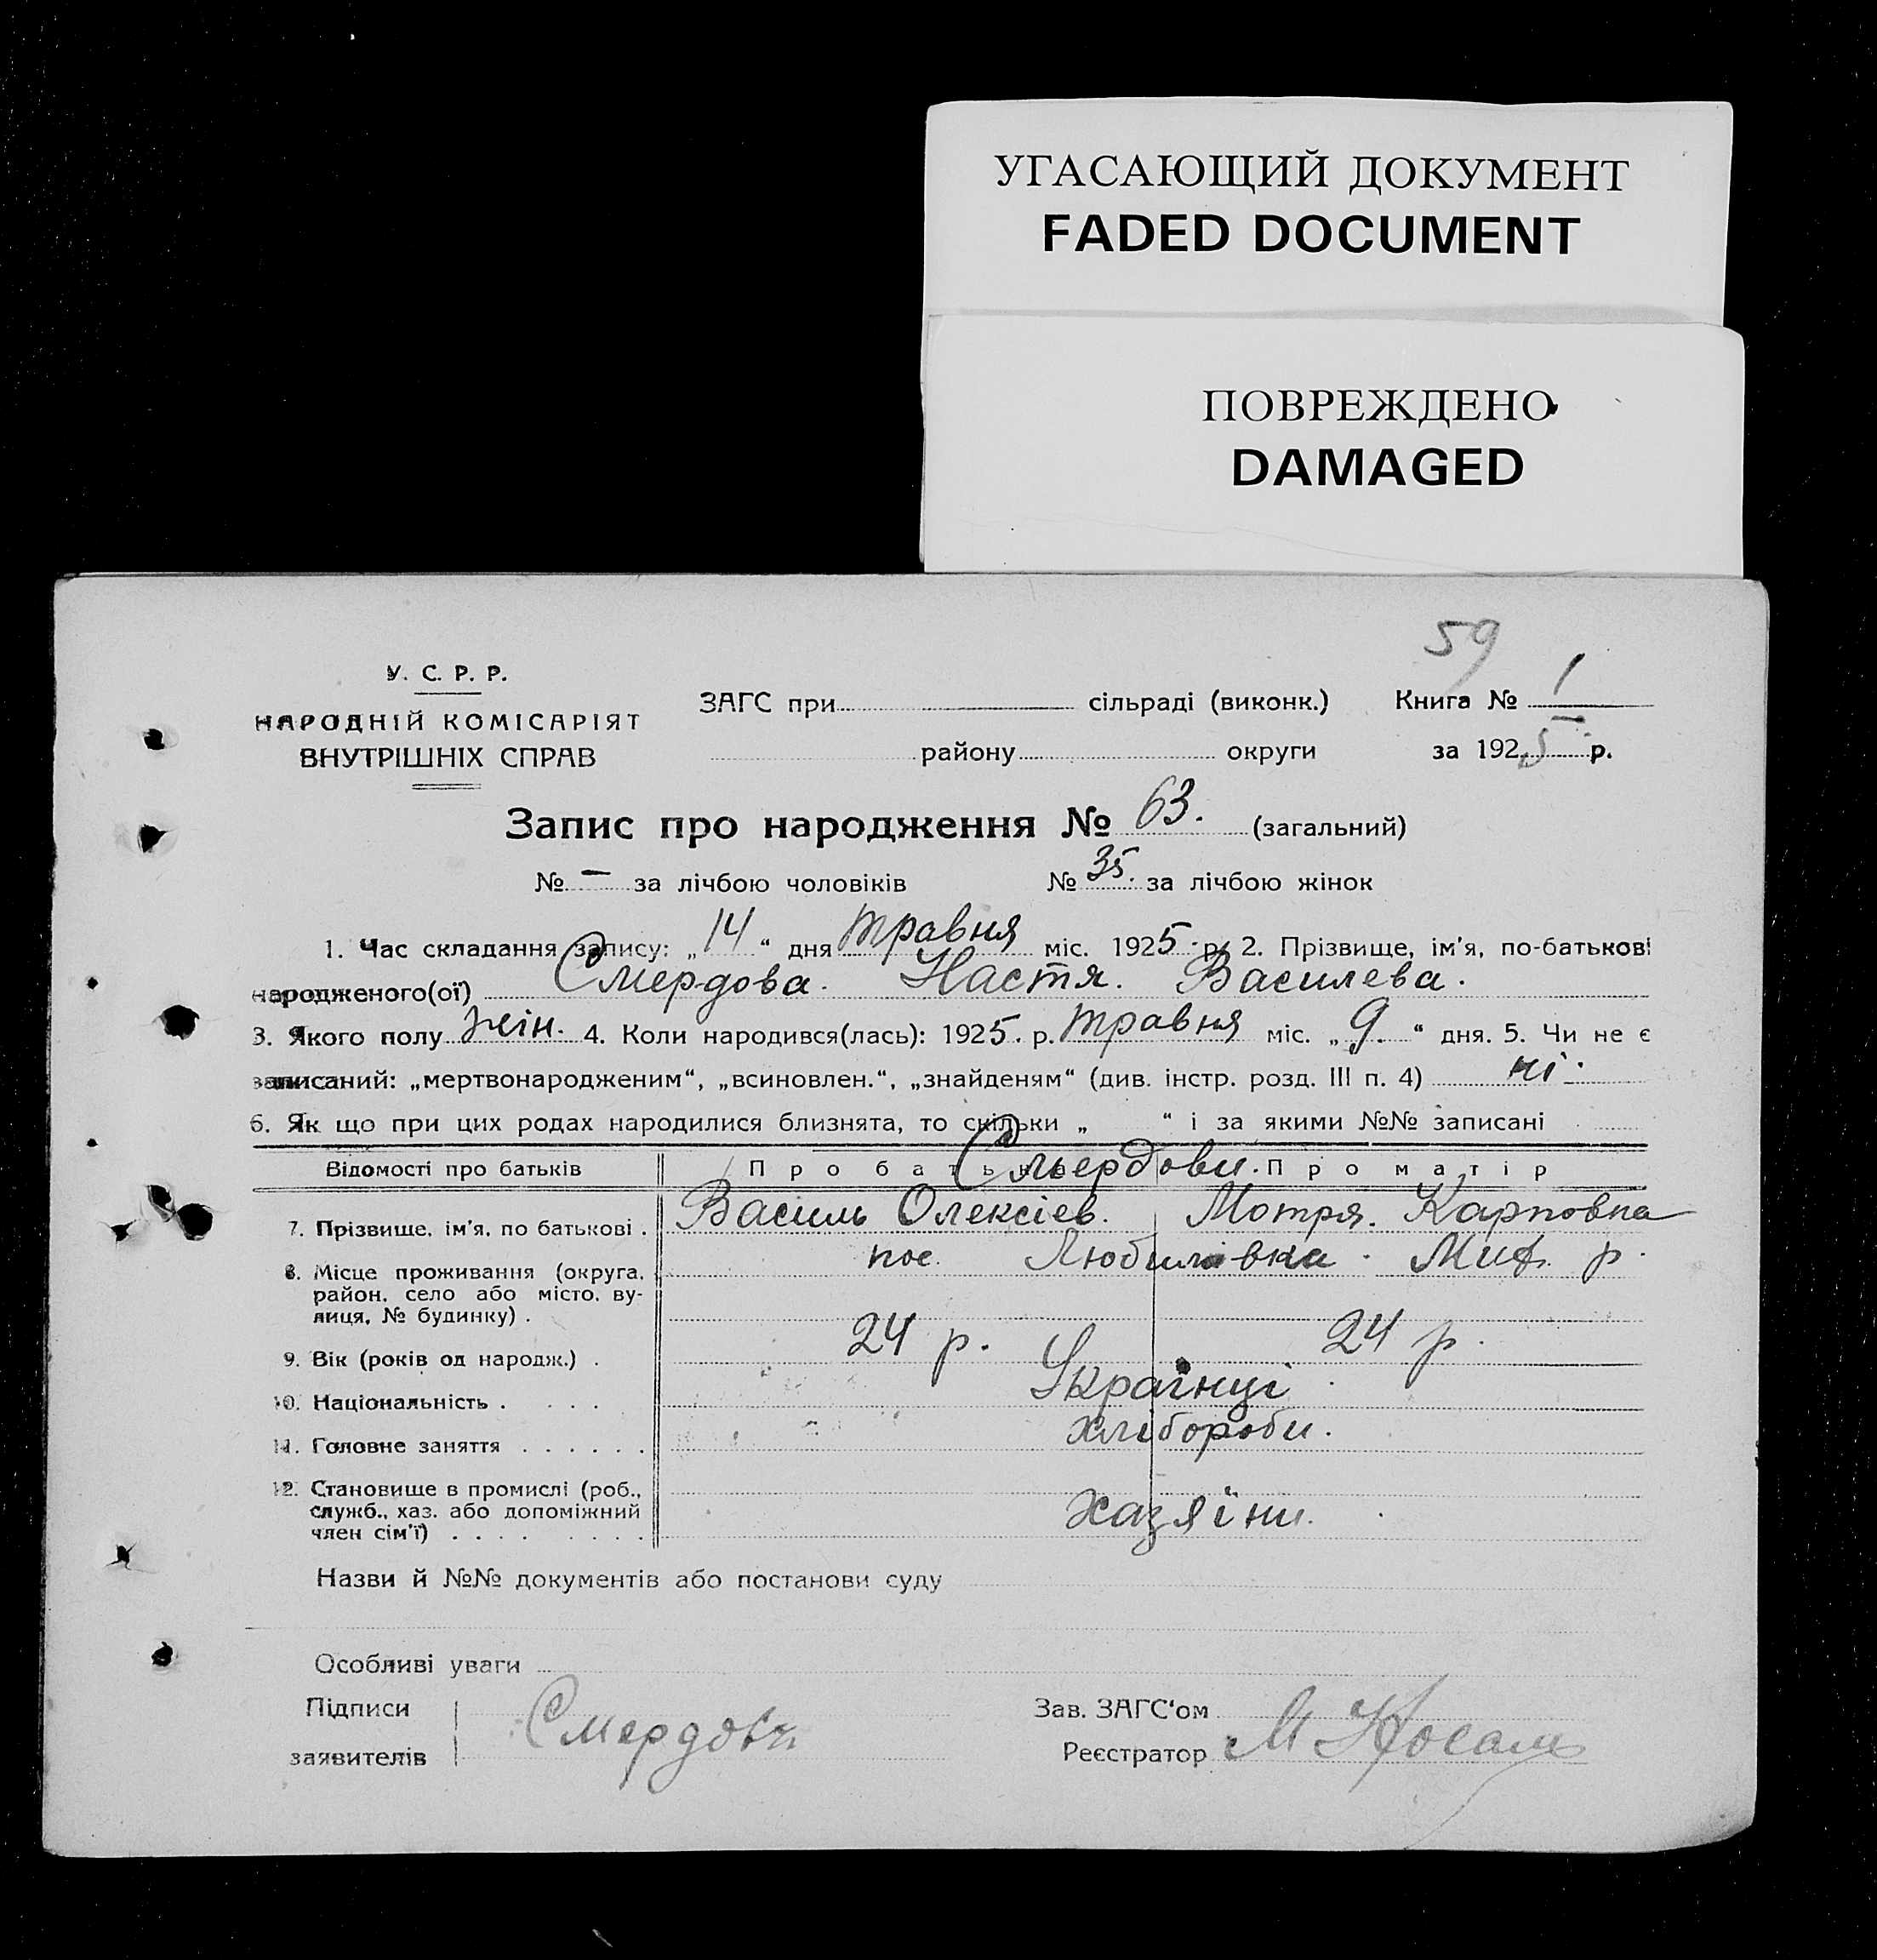 УГАСАЮЩИЙ ДОКУМЕНТ
FADED DOCUMENT
ПОВРЕЖДЕНО
DAMAGED
59
У. С. Р. Р.
НАРОДНІЙ КОМІСАРІЯТ
ВНУТРІШНІХ СПРАВ
ЗАГС при сільраді (виконк.) Книга № 1
району округи за 1925 р.
Запис про народження № 63. (загальний)
№ – за лічбою чоловіків № 35. за лічбою жінок
1. Час складання запису: „14“ дня травня міс. 1925 р. 2. Прізвище, ім'я, по-батькові
народженого(ої) Смердова. Настя. Василева.
3. Якого полу жін. 4. Коли народився(лась): 1925. р. травня міс. „9.“ дня. 5. Чи не є
записаний: „мертвонародженим“, „всиновлен.“, „знайденям“ (див. інстр. розд. III п. 4) ні.
6. Як що при цих родах народилися близнята, то скільки „ “ і за якими №№ записані
Відомості про батьків Про батька Смердови. Про матір
7. Прізвище, ім'я, по батькові . Василь Олексієв. Мотря. Карповна
8. Місце проживання (округа, пос. Р.
район, село або місто, ву-
лиця, № будинку) .
9. Вік (років од народж.) . 24 р. 24 р.
10. Національність . . . . Українці
11. Головне заняття . . . . . . Хлібороби.
12. Становище в промислі (роб.,
служб., хаз. або допоміжний Хазяїни.
член сім'ї) . . . . . . . .
Назви й №№ документів або постанови суду
Особливі уваги
Підписи Зав. ЗАГС'ом
заявителів Смердов Реєстратор М